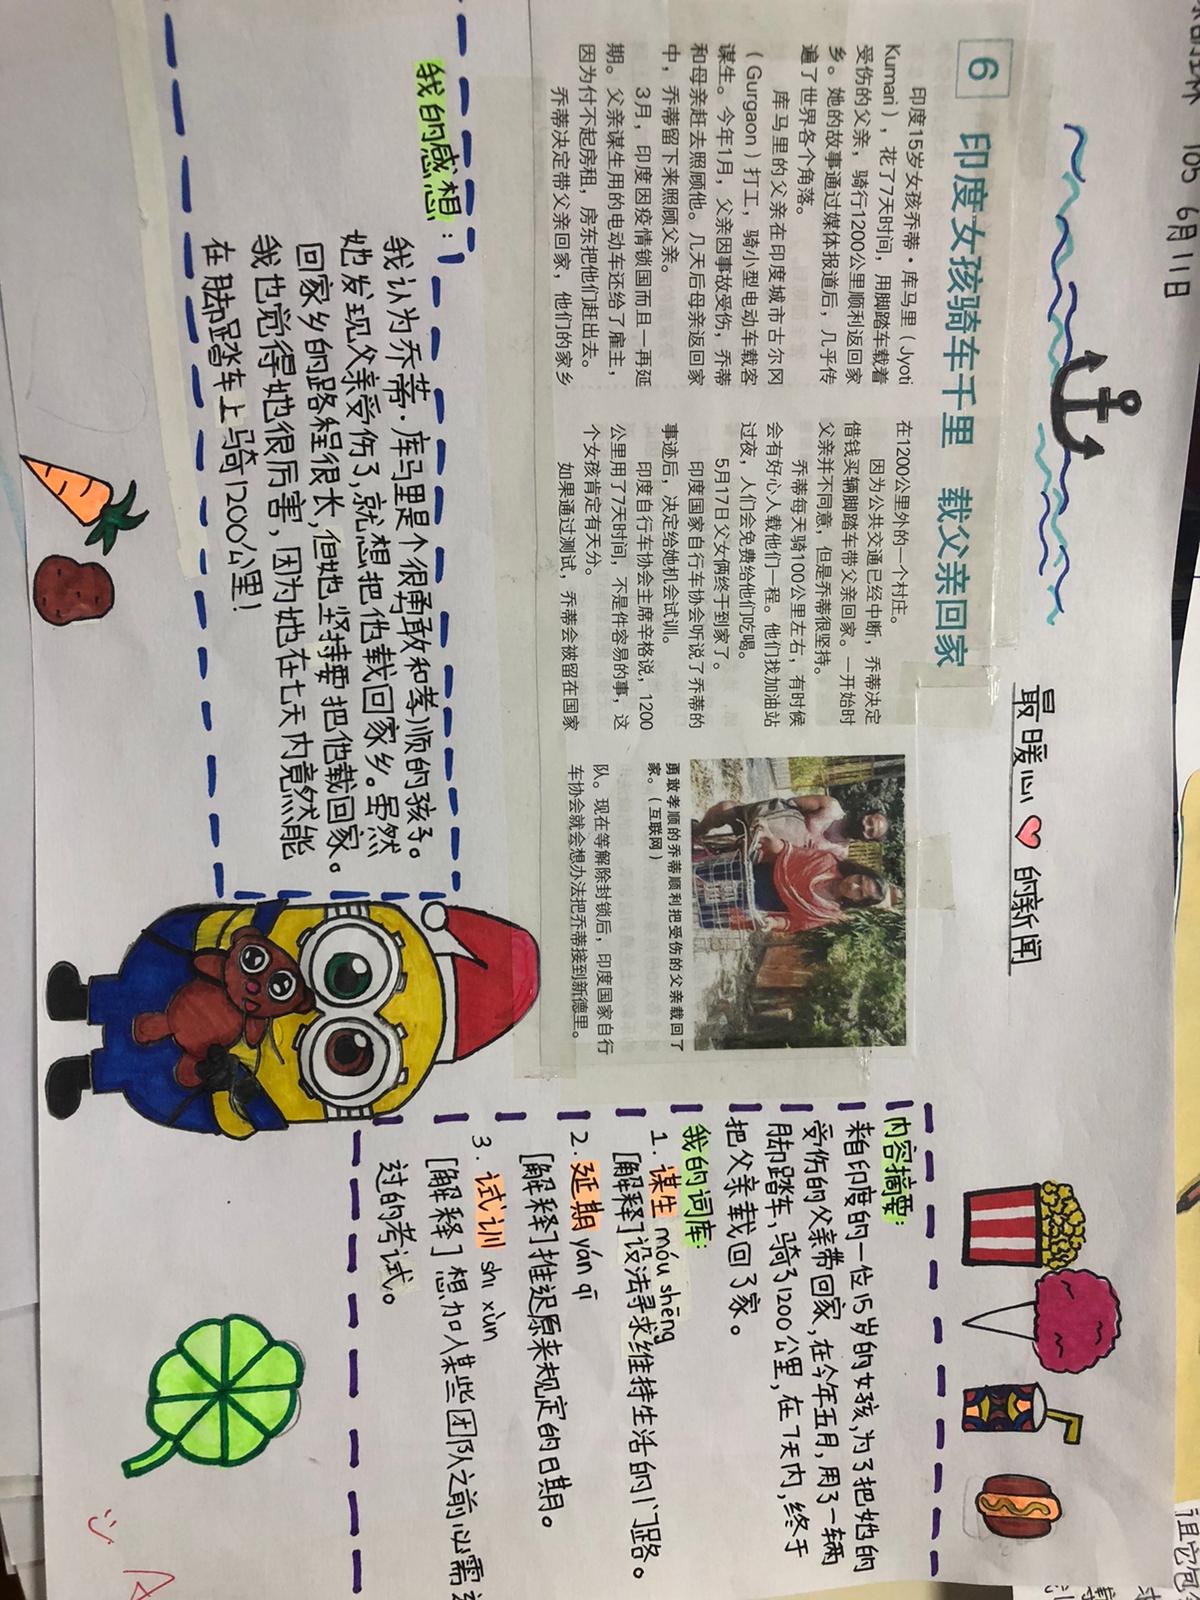 105 6月11日
最暖心 的新闻
6 印度女孩骑车千里 载父亲回家
印度15岁女孩乔蒂·库马里（Jyoti
Kumari），花了7天时间，用脚踏车载着
受伤的父亲，骑行1200公里顺利返回家
乡。她的故事通过媒体报道后，几乎传
遍了世界各个角落。
库马里的父亲在印度城市古尔冈
（Gurgaon）打工，骑小型电动车载客
谋生。今年1月，父亲因事故受伤，乔蒂
和母亲赶去照顾他。几天后母亲返回家
中，乔蒂留下来照顾父亲。
3月，印度因疫情锁国而且一再延
期。父亲谋生用的电动车还给了雇主，
因为付不起房租，房东把他们赶出去。
乔蒂决定带父亲回家，他们的家乡
在1200公里外的一个村庄。
因为公共交通已经中断，乔蒂决定
借钱买辆脚踏车带父亲回家。一开始时
父亲并不同意，但是乔蒂很坚持。
乔蒂每天骑100公里左右，有时候
会有好心人载他们一程。他们找加油站
过夜，人们会免费给他们吃喝。
5月17日父女俩终于到家了。
印度国家自行车协会听说了乔蒂的
事迹后，决定给她机会试训。
印度自行车协会主席辛格说，1200
公里用了7天时间，不是件容易的事，这
个女孩肯定有天分。
如果通过测试，乔蒂会被留在国家
勇敢孝顺的乔蒂顺利把受伤的父亲载回了
家。（互联网）
队。现在等解除封锁后，印度国家自行
车协会就会想办法把乔蒂接到新德里。
内容摘要：
来自印度的一位15岁的女孩，为了把她的
受伤的父亲带回家，在今年五月，用了一辆
脚踏车，骑了1200公里，在7天内，终于
把父亲载回了家。
我的词库：
1. 谋生 móu shēng
[解释] 设法寻求维持生活的门路。
2. 延期 yán qī
[解释] 推迟原来规定的日期。
3. 试训 shì xùn
[解释] 想加入某些团队之前必需
过的考试。
我的感想：
我认为乔蒂·库马里是个很勇敢和孝顺的孩子。
她发现父亲受伤了，就想把他载回家乡。虽然
回家乡的路程很长，但她坚持要把他载回家。
我也觉得她很厉害，因为她在七天内竟然能
在脚踏车上骑1200公里！
A